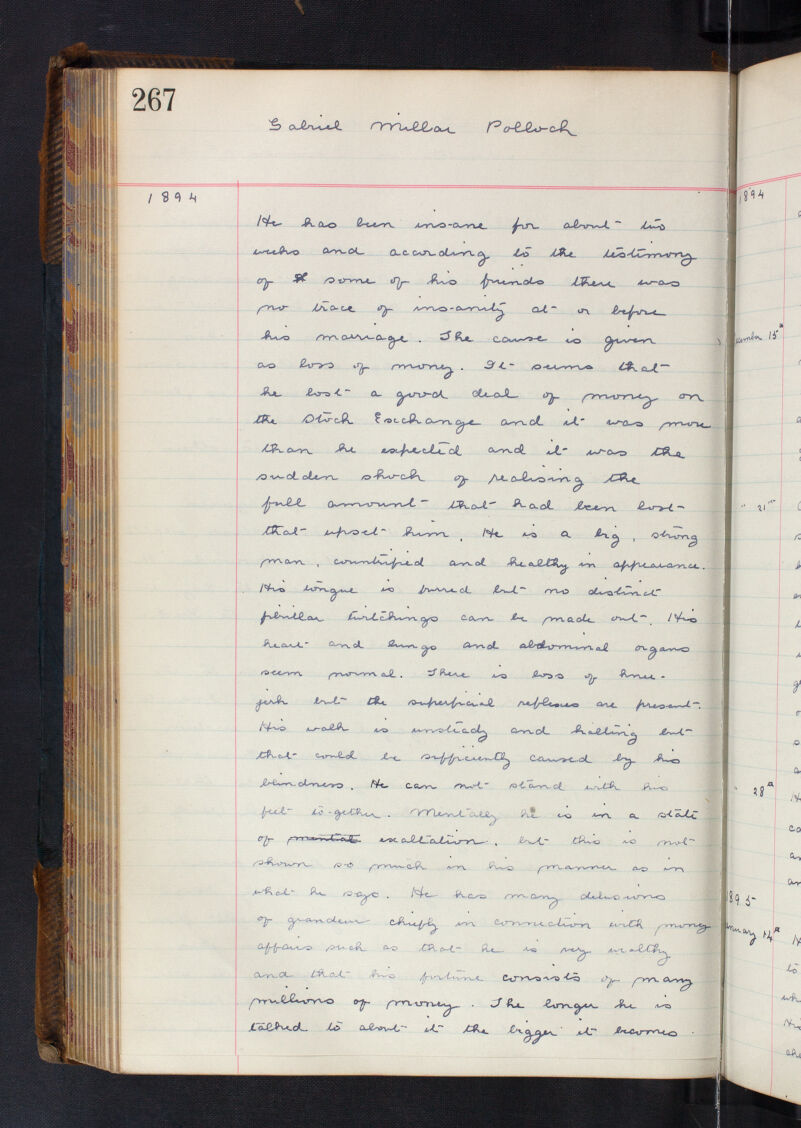 267
Gabriel Millar Pollock
1894
He has been ins-ane for about two
weeks and according to the testimony
of some of his friends there was
no trace of ins-anity at or before
his marriage. The cause is given
as loss of money. It seems that
he lost a good deal of money on
the Stock Exchange and it was more
than he expected and it was the
sudden shock of realising the
full amount that had been lost
that upset him. He is a big, strong
man, countrified and healthy in appearance.
His tongue is furred but no distinct
fibrillar twitchings can be made out. His
heart and lungs and abdominal organs
seem normal. There is loss of knee-
jerk but the superficial reflexes are present.
His walk is unsteady and halting but
that could be sufficiently caused by his
blindness. He can not stand with his
feet to-gether. Mentally he is in a state
of mental exaltation, but this is not
shown so much in his manner as in
what he says. He has many delusions
of grandeur chiefly in connection with money
affairs such as that he is very wealthy
and that his fortune consists of many
millions of money. The longer he is
talked to about it the bigger it becomes.
1894
15
" 21
" 28
14